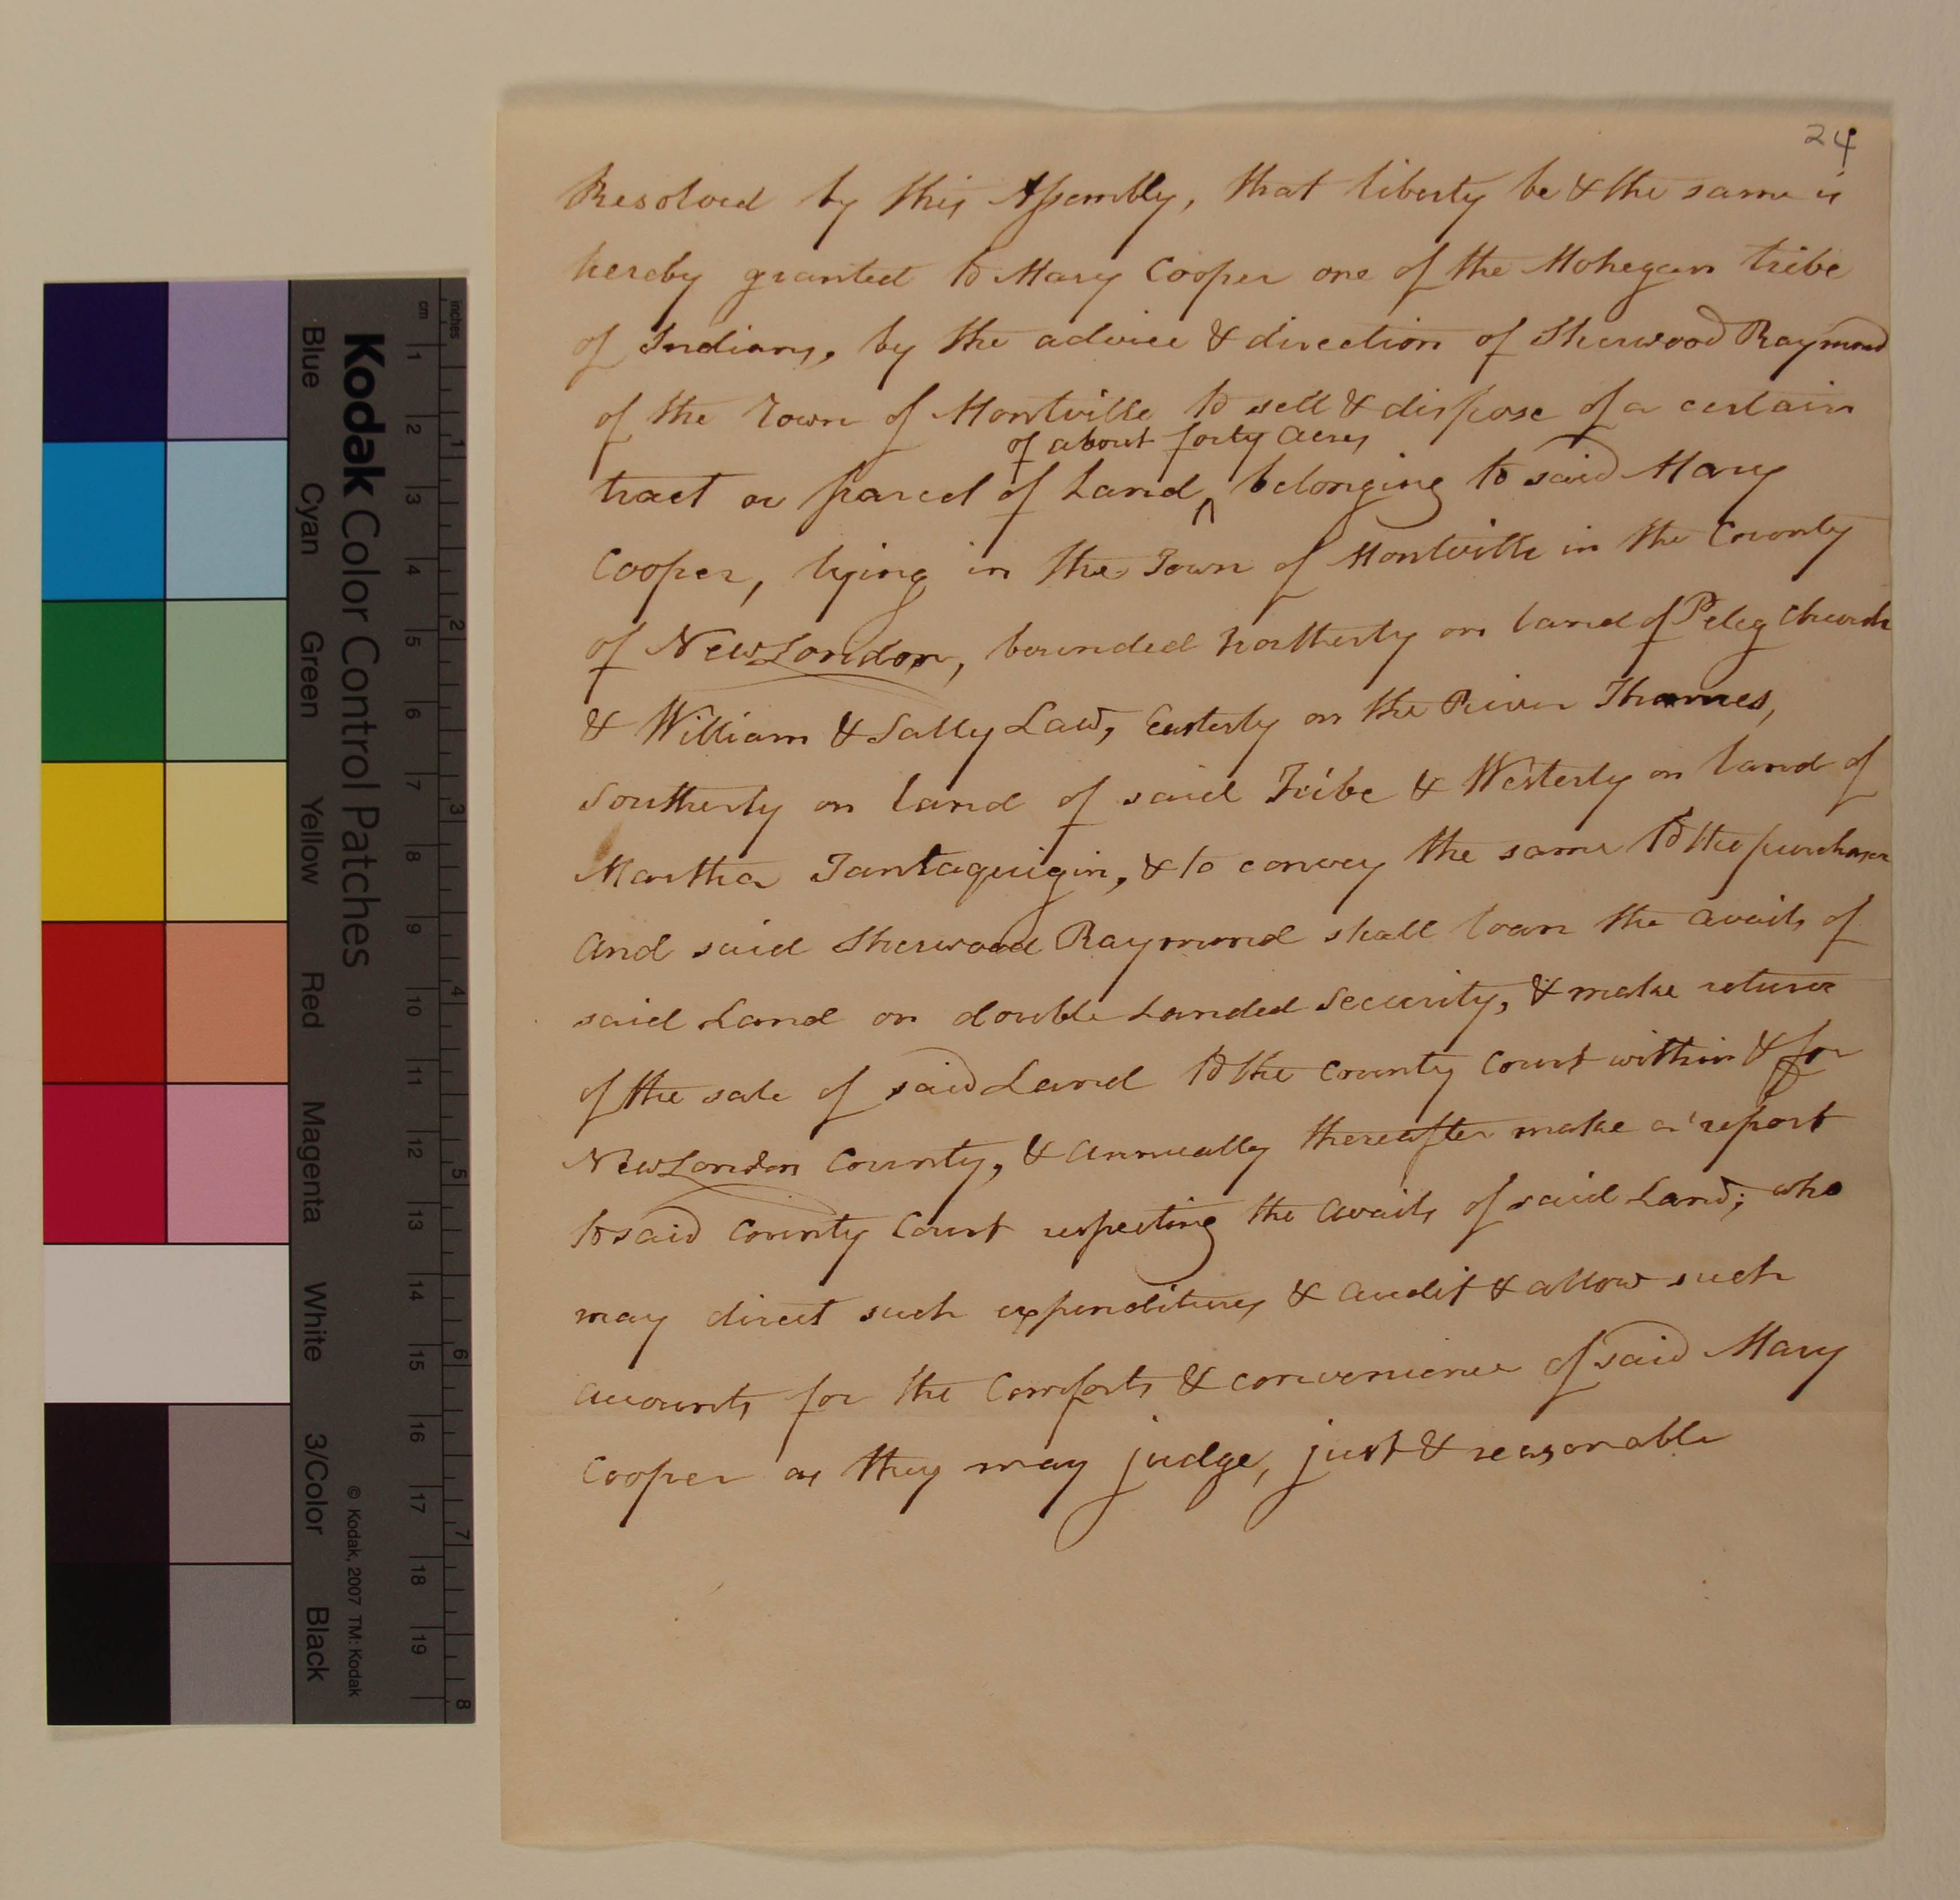 24
Resolved by this Assembly, that liberty be & the same is
hereby granted to Mary Cooper one of the Mohegan tribe
of Indians, by the advice & direction of Sherwood Raymond
of the Town of Montville to sell & dispose of a certain
of about forty acres
tract or parcel of Land ^ belonging to said Mary
Cooper, lying in the Town of Montville in the County
of New London, bounded northerly on land of Peleg Church
& William & Sally Law, Easterly on the River Thames,
Southerly on land of said Tribe & Westerly on land of
Martha Tantaquigin, & to convey the same to the purchaser
And said Sherwood Raymond shall loan the avails of
said Land on double Landed Security, & make return
of the sale of said Land to the County Court within & for
New London County, & annually thereafter make a report
to said County Court respecting the avails of said Land; who
may direct such expenditures & audit & allow such
accounts for the Comforts & convenience of said Mary
Cooper as they may judge, just & reasonable
Kodak Color Control Patches
Blue Cyan Green Yellow Red Magenta White 3/Color Black
© Kodak, 2007 TM: Kodak
inches 1 2 3 4 5 6 7 8
cm 1 2 3 4 5 6 7 8 9 10 11 12 13 14 15 16 17 18 19